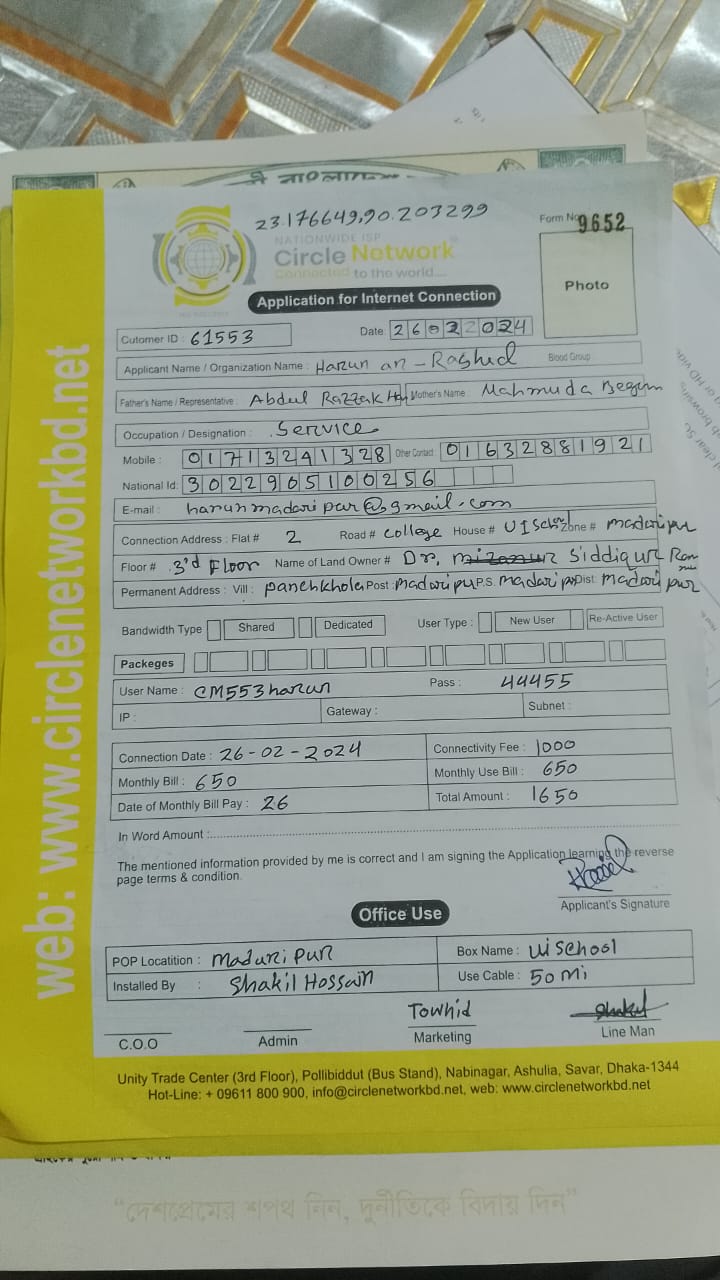 23.176649,90.203299
Form No 9652
NATIONWIDE ISP
Circle Network
Connected to the world....
Photo
Application for Internet Connection
Cutomer ID : 61553
Date: 26022024
Applicant Name / Organization Name : Harun ar-Rashid Blood Group :
Father's Name / Representative : Abdul Razzak Mother's Name : Mahmuda Begum
Occupation / Designation : Service
Mobile : 01713241328 Other Contact : 01632881921
National Id: 3022905100256
E-mail : harunmadaripur@gmail.com
Connection Address : Flat # 2 Road # college House # UI School Zone # madaripur
Floor # 3rd Floor Name of Land Owner # Dr, mizanur Siddiqur
Permanent Address : Vill : panchkhola Post : madaripur P.S. madaripur Dist: madaripur
Bandwidth Type Shared Dedicated User Type : New User Re-Active User
Packeges
User Name : CM553harun Pass : 44455
IP : Gateway : Subnet :
Connection Date : 26-02-2024 Connectivity Fee : 1000
Monthly Bill : 650 Monthly Use Bill : 650
Date of Monthly Bill Pay : 26 Total Amount : 1650
In Word Amount :
The mentioned information provided by me is correct and I am signing the Application learning the reverse
page terms & condition.
Applicant's Signature
Office Use
POP Locatition : Madaripur Box Name : UI School
Installed By : Shakil Hossain Use Cable : 50 Mi
Towhid Shakil
C.O.O Admin Marketing Line Man
Unity Trade Center (3rd Floor), Pollibiddut (Bus Stand), Nabinagar, Ashulia, Savar, Dhaka-1344
Hot-Line: + 09611 800 900, info@circlenetworkbd.net, web: www.circlenetworkbd.net
web: www.circlenetworkbd.net
“দেশপ্রেমের শপথ নিন, দুর্নীতিকে বিদায় দিন”